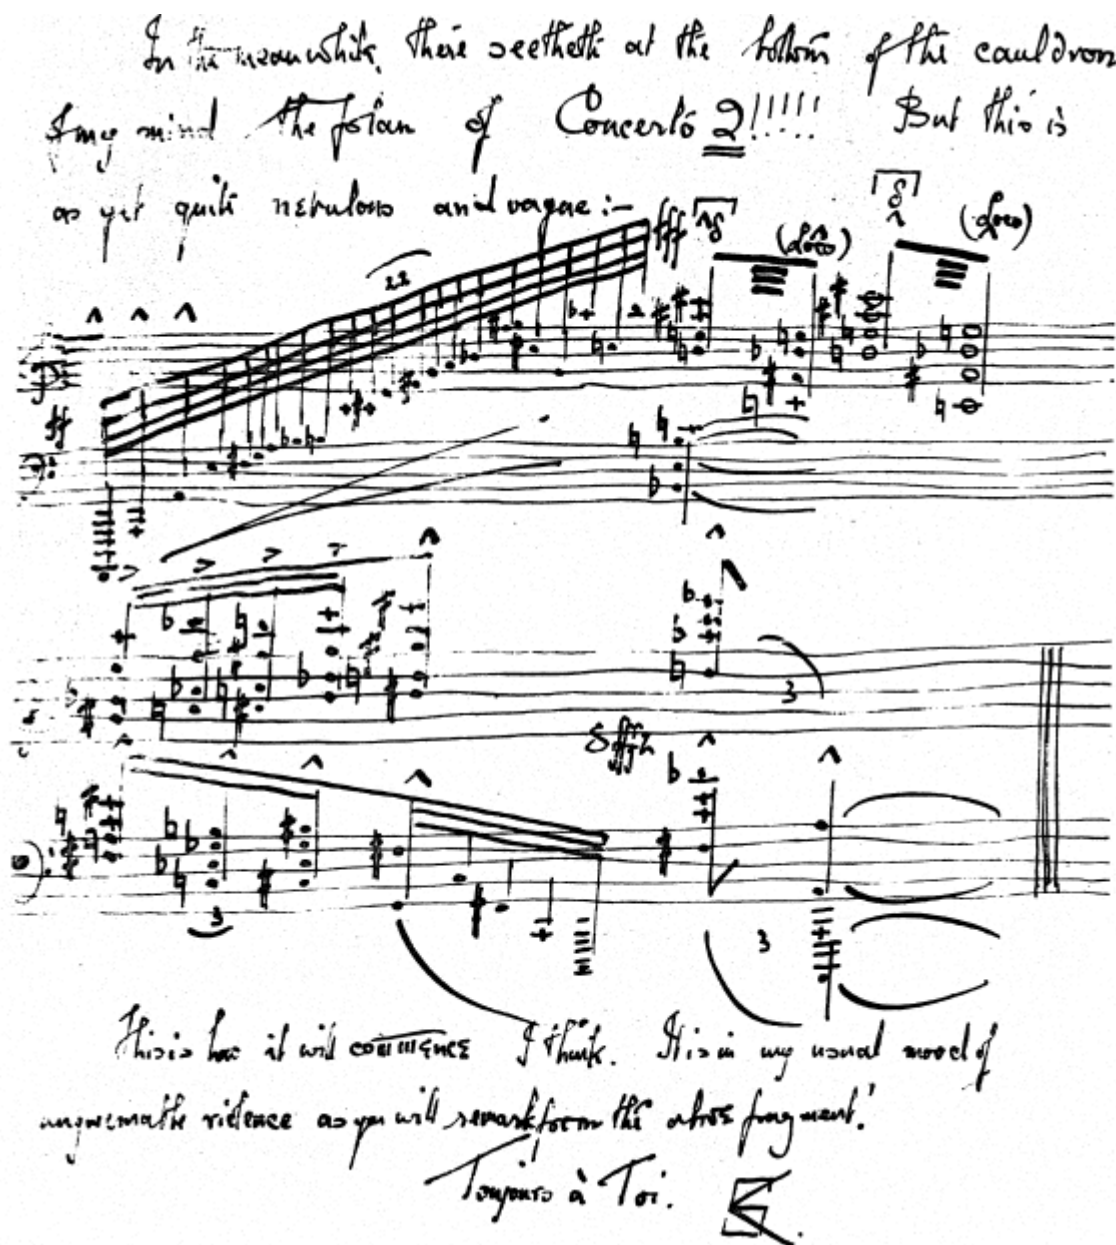 In the meanwhile, there seetheth at the bottom of the cauldron
of my mind the plan of Concerto 2!!!!! But this is
as yet quite nebulous and vague :—
22 fff 8 (Loco) 8 (Loco)
ff
3
sffz
3
3
This is how it will commence I think. It is in my usual mood of
violence as you will remark from the above fragment!
Toujours à Toi. KS.